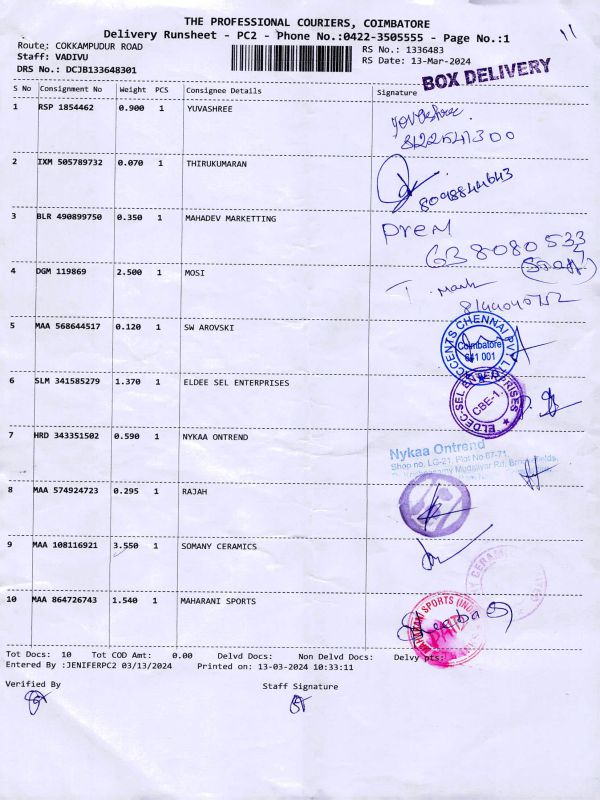 THE PROFESSIONAL COURIERS, COIMBATORE
Delivery Runsheet - PC2 - Phone No.:0422-3505555 - Page No.:1
Route: COKKAMPUDUR ROAD
Staff: VADIVU
DRS No.: DCJB133648301
RS No.: 1336483
RS Date: 13-Mar-2024
11
BOX DELIVERY
S No Consignment No Weight PCS Consignee Details Signature
1 RSP 1854462 0.900 1 YUVASHREE
Yuvashree
8122541300
2 IXM 505789732 0.070 1 THIRUKUMARAN
8098844643
3 BLR 490899750 0.350 1 MAHADEV MARKETTING
Prem
(Staff)
4 DGM 119869 2.500 1 MOSI
T. Mark
5 MAA 568644517 0.120 1 SW AROVSKI
ACCENTS CHENNAI PVT. LTD
Coimbatore
641 001
6 SLM 341585279 1.370 1 ELDEE SEL ENTERPRISES
ELDEE-SEL ENTERPRISES
CBE-1.
7 HRD 343351502 0.590 1 NYKAA ONTREND
Nykaa Ontrend
Shop no, LG-21, Plot No 67-71,
Mudaliyar Rd, Brookefields,
8 MAA 574924723 0.295 1 RAJAH
9 MAA 108116921 3.550 1 SOMANY CERAMICS
CERAMI
10 MAA 864726743 1.540 1 MAHARANI SPORTS
MAHARANI SPORTS (INDIA)
PAID
Tot Docs: 10 Tot COD Amt: 0.00 Delvd Docs: Non Delvd Docs: Delvy pts:
Entered By :JENIFERPC2 03/13/2024 Printed on: 13-03-2024 10:33:11
Verified By Staff Signature